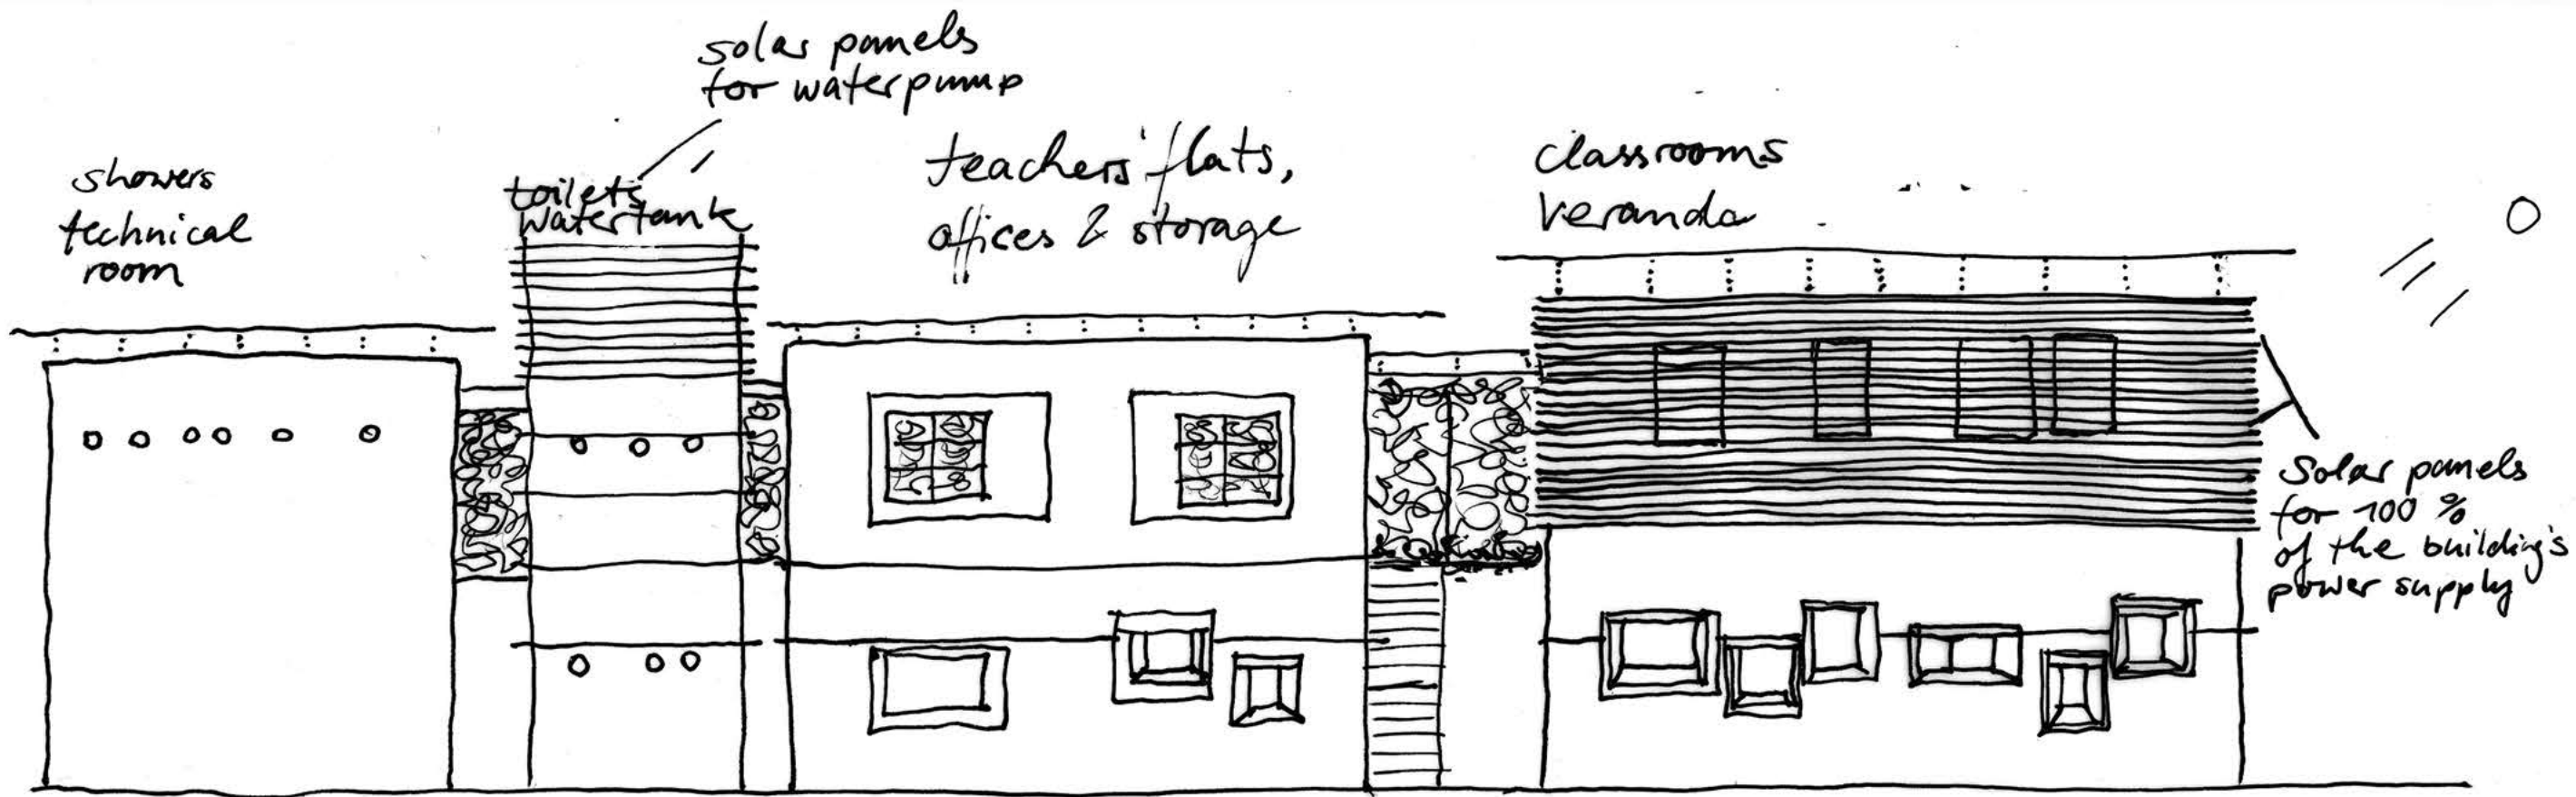 solar panels
for waterpump
showers
technical
room
toilets
watertank
teachers' flats,
offices & storage
classrooms
veranda
Solar panels
for 100 %
of the building's
power supply